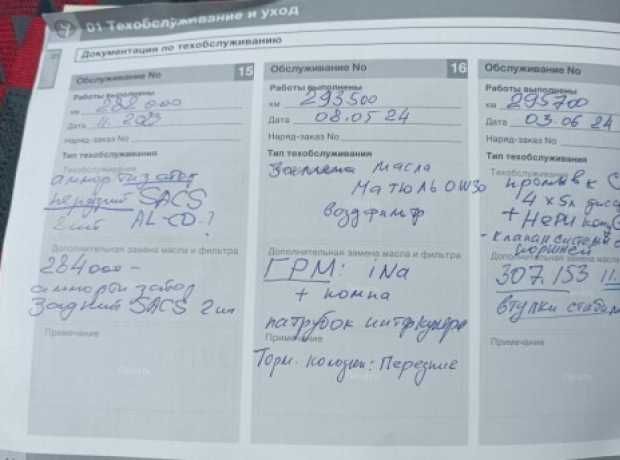 01 Техобслуживание и уход
Документация по техобслуживанию
Обслуживание No 15
Работы выполнены
км 282 000
Дата 11. 2023
Наряд-заказ No
Тип техобслуживания
Техобслуживание
передний SACS
2 шт AL-CD.?
Дополнительная замена масла и фильтра
284 000 -
Задний SACS 2 шт
Примечание
Обслуживание No 16
Работы выполнены
км 293500
Дата 08.05 24
Наряд-заказ No
Тип техобслуживания
Замена масла
Матюль 0W30
Возд фильтр
Дополнительная замена масла и фильтра
ГРМ: iNa
+ помпа
патрубок интеркулера
Примечание
Торм. колодки: Передние
Обслуживание No
Работы выполнены
км 295700
Дата 03.06 24
Наряд-заказ No
Тип техобслуживания
Техобслуживание
4 x 5л
+
- клапан системы
Дополнительная замена масла
307.153 11.
втулки
Примечание